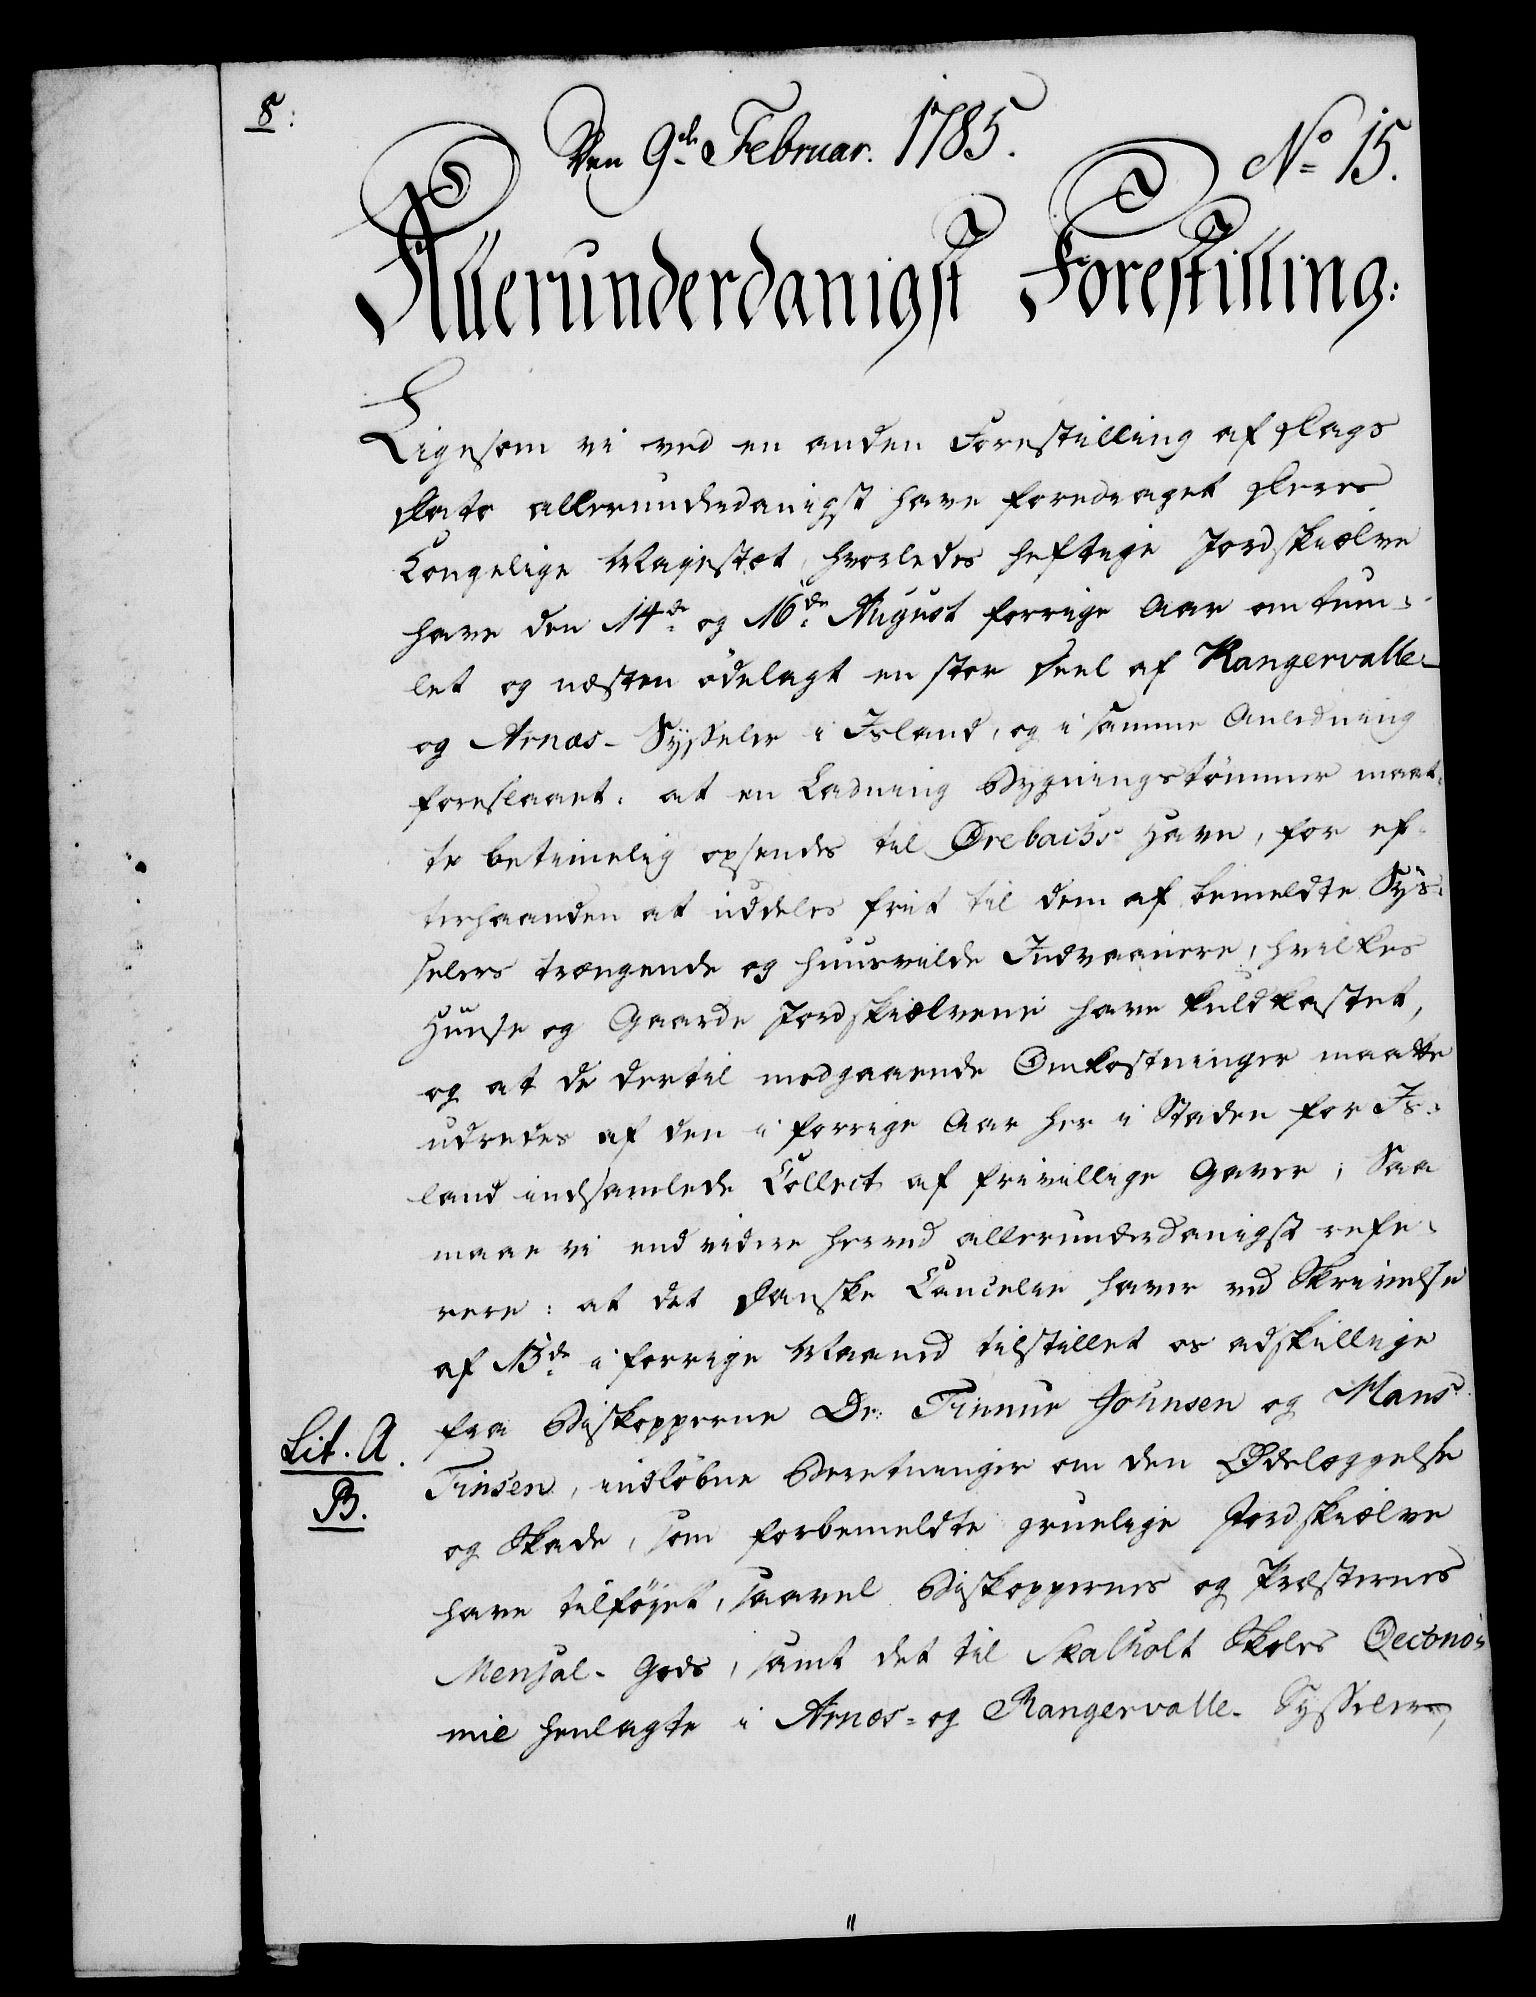 8:
Den 9de Februar. 1785.
No 15.
Allerunderdanigst Forestilling:
Ligesom vi ved en anden Forestilling af Dags
Dato allerunderdanigst have foredraget Deres
Kongelige Majestæt, hvorledes heftige Jordskiælve
have den 14de og 16de August forrige Aar omtum-
let og næsten ödelagt en stor Deel af Rangervalle-
og Arnæs-Sysseler i Island, og i samme Anledning
foreslaaet: at en Ladning Bygningstömmer maat-
te betimelig opsendes til Örebachs Havn, for ef-
terhaanden at uddeles frit til dem af bemeldte Sys-
selers trængende og huusvilde Indvaanere, hvilkes
Huuse og Gaarde Jordskiælvene have kuldkastet,
og at de dertil medgaaende Omkostninger maatte
udredes af den i forrige Aar her i Staden for Is-
land indsamlede Collect af frivillige Gaver; Saa
maae vi end videre herved allerunderdanigst refe-
rere: at det Danske Cancelie haver ved Skrivelse
af 13de i forrige Maaned tilstillet os adskillige
fra Biskopperne Dr: Finnur Johnsen og Hans
Finsen, indløbne Beretninger om den Ödelæggelse
Lit. A.
B.
og Skade, som forbemeldte gruelige Jordskiælve
have tilföyet, saavel Biskoppernes og Præsternes
Mensal-Gods, samt det til Skalholt Skoles Oecono-
mie henlagte i Arnæs- og Rangervalle-Sysseler,